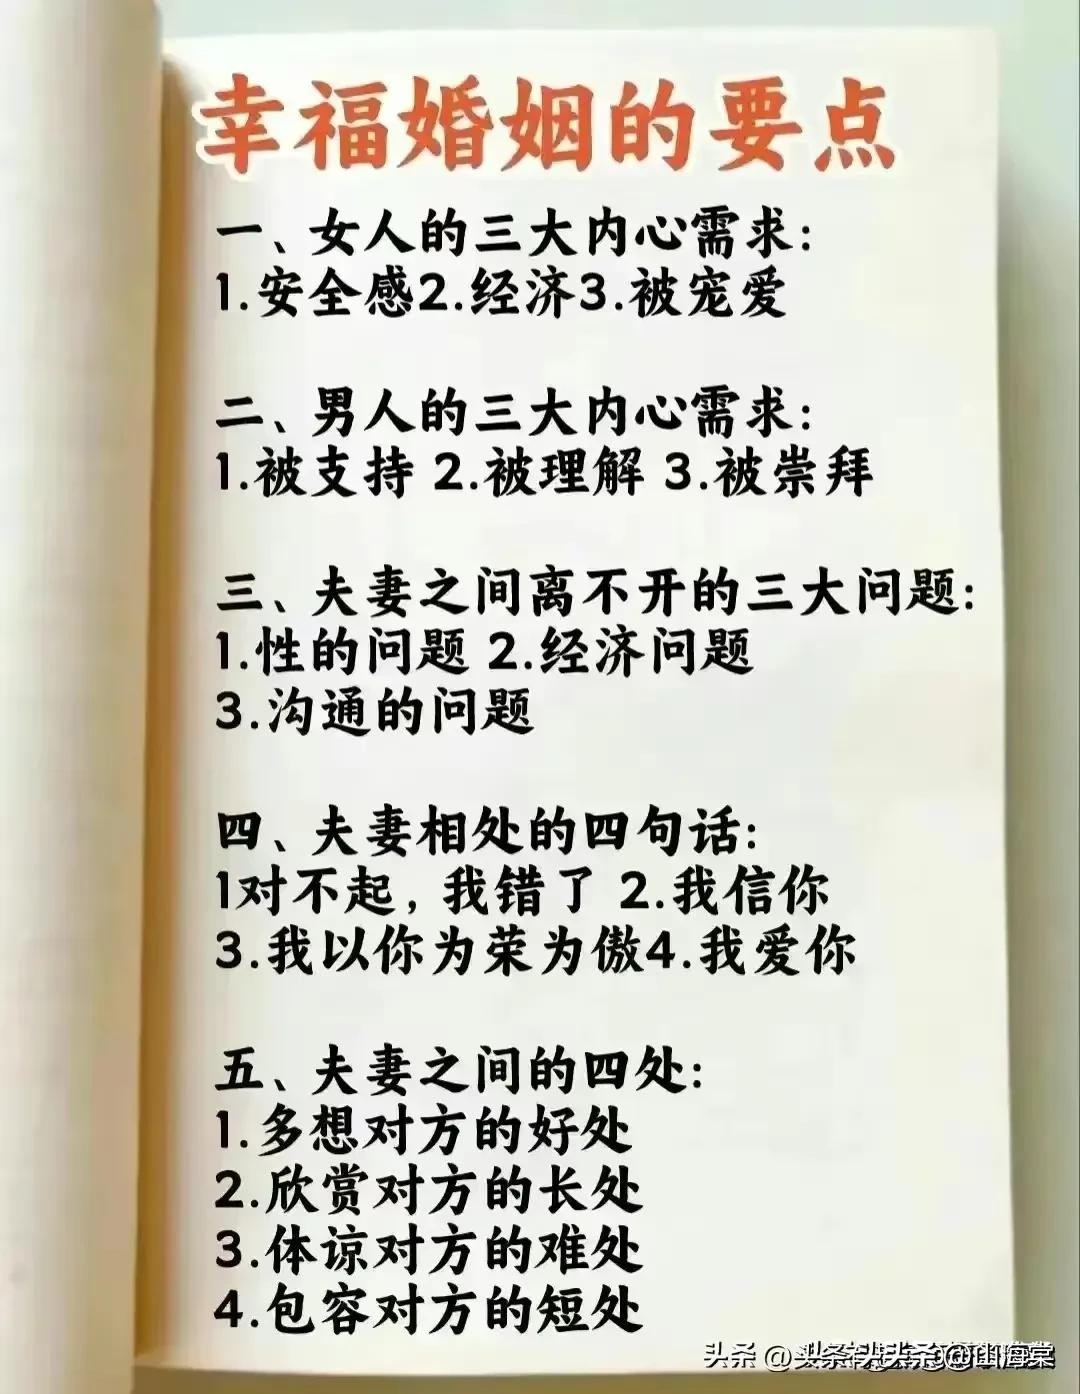 幸福婚姻的要点
一、女人的三大内心需求:
1.安全感2.经济3.被宠爱
二、男人的三大内心需求:
1.被支持 2.被理解 3.被崇拜
三、夫妻之间离不开的三大问题:
1.性的问题 2.经济问题
3.沟通的问题
四、夫妻相处的四句话:
1对不起，我错了 2.我信你
3.我以你为荣为傲4.我爱你
五、夫妻之间的四处:
1.多想对方的好处
2.欣赏对方的长处
3.体谅对方的难处
4.包容对方的短处
头条 @